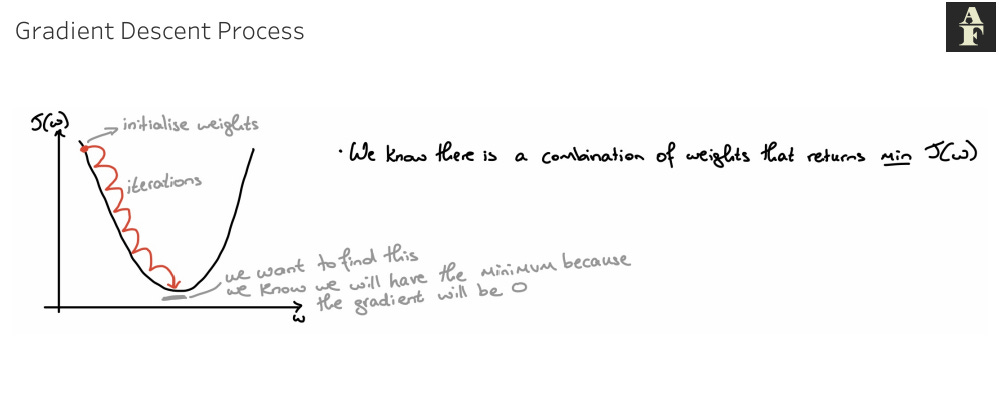 Gradient Descent Process
AF
J(ω)
initialise weights
· We know there is a combination of weights that returns min J(ω)
iterations
we want to find this
we know we will have the minimum because
the gradient will be 0
ω